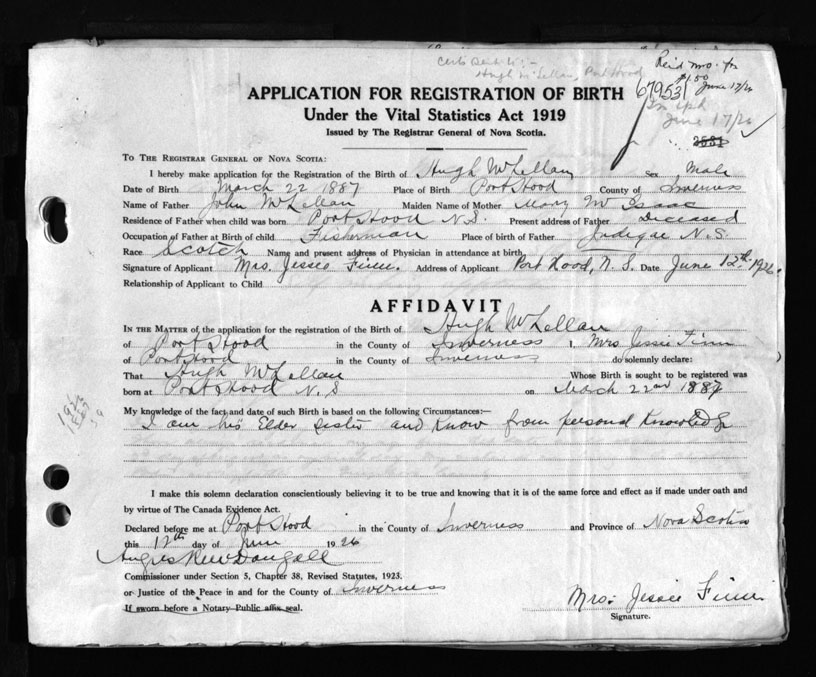 Certs Sent to :-
Hugh McLellan, Port Hood
Rec'd mo. for
$1.50
679531 June 17/26
June 17/26
2581
APPLICATION FOR REGISTRATION OF BIRTH
Under the Vital Statistics Act 1919
Issued by The Registrar General of Nova Scotia.
To The Registrar General of Nova Scotia:
I hereby make application for the Registration of the Birth of Hugh McLellan Sex Male
Date of Birth March 22 1887 Place of Birth Port Hood County of Inverness
Name of Father John McLellan Maiden Name of Mother Mary Mc Isaac
Residence of Father when child was born Port Hood N.S. Present address of Father Diceased
Occupation of Father at Birth of child Fisherman Place of birth of Father Judique N.S.
Race Scotch Name and present address of Physician in attendance at birth
Signature of Applicant Mrs. Jessie Finn. Address of Applicant Port Hood, N.S. Date June 12th 1926.
Relationship of Applicant to Child
AFFIDAVIT
In the Matter of the application for the registration of the Birth of Hugh McLellan
of Port Hood in the County of Inverness I, Mrs Jessie Finn
of Port Hood in the County of Inverness do solemnly declare:
That Hugh McLellan Whose Birth is sought to be registered was
born at Port Hood N.S on March 22nd 1887
My knowledge of the fact and date of such Birth is based on the following Circumstances:—
I am his Elder sister and know from personal Knowledge
I make this solemn declaration conscientiously believing it to be true and knowing that it is of the same force and effect as if made under oath and
by virtue of The Canada Evidence Act.
Declared before me at Port Hood in the County of Inverness and Province of Nova Scotia
this 12th day of June 1926
Angus MacDougall
Commissioner under Section 5, Chapter 38, Revised Statutes, 1923.
or Justice of the Peace in and for the County of Inverness
If sworn before a Notary Public affix seal.
Mrs. Jessie Finn
Signature.
1926